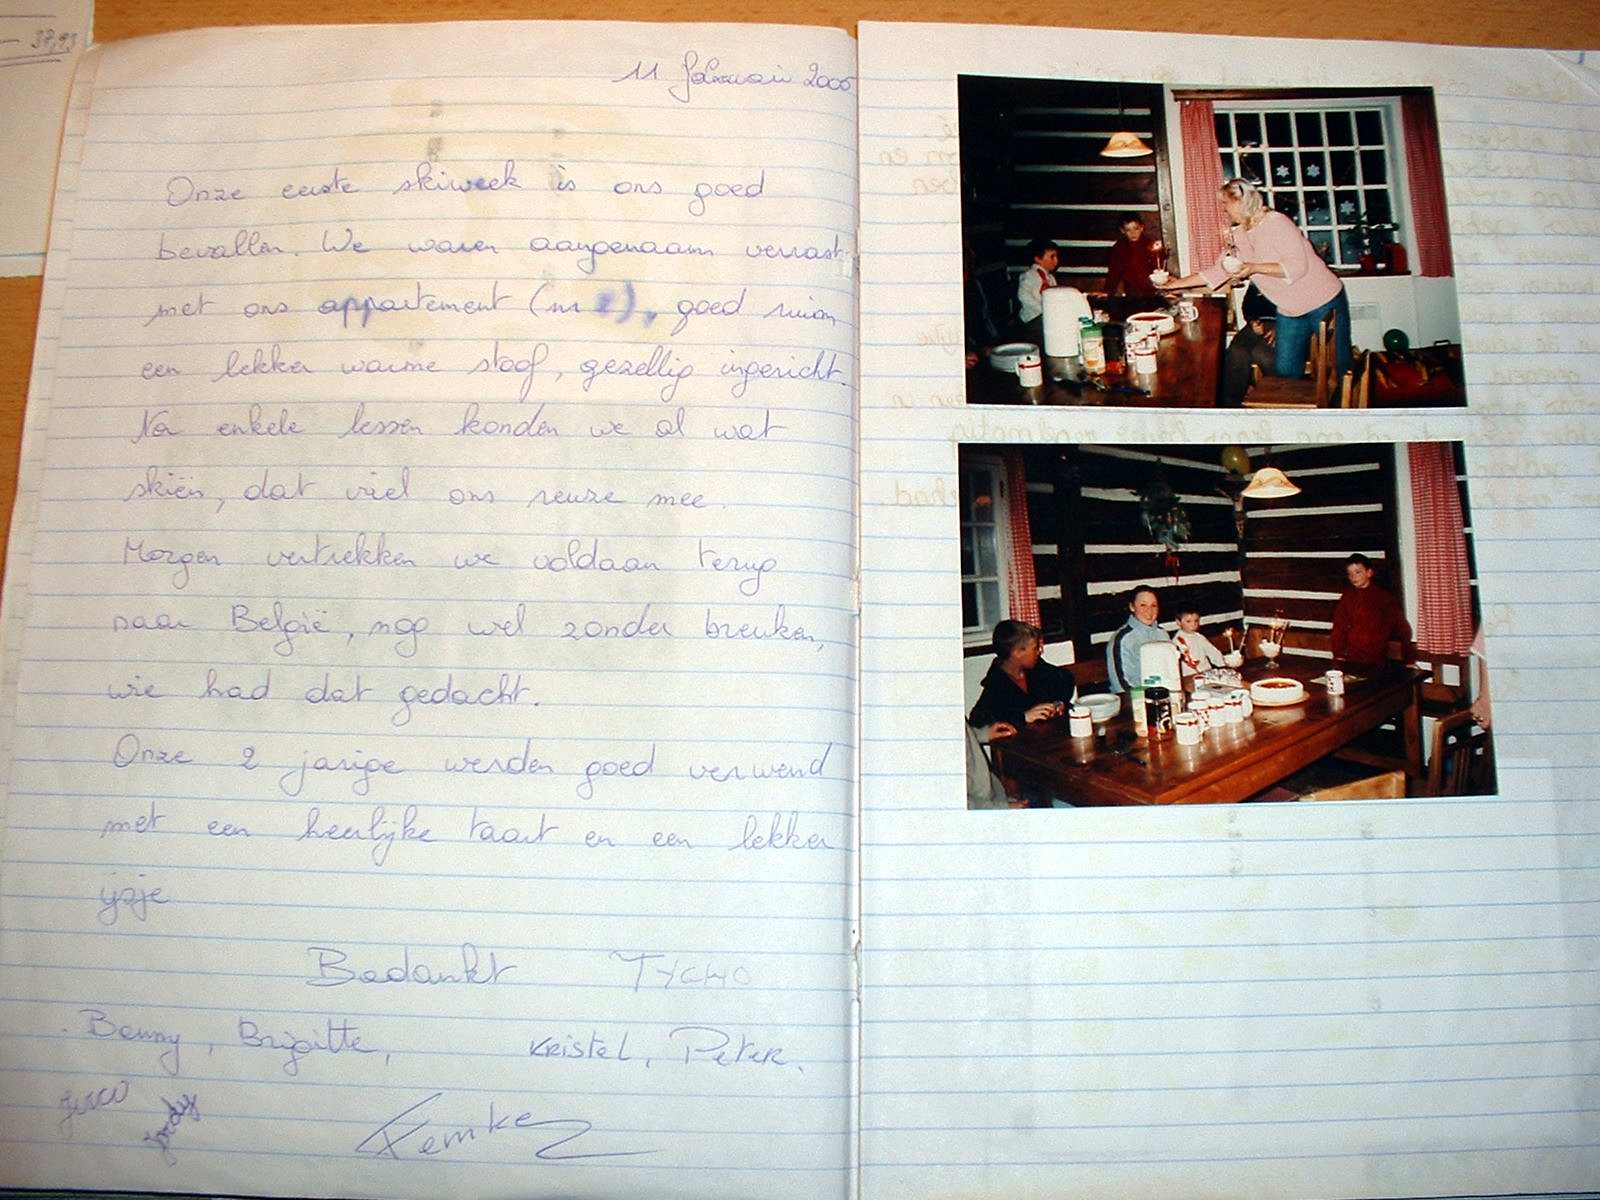 37,93
11 februari 2005
Onze eerste skiweek is ons goed
bevallen. We waren aangenaam verrast
met ons appartement (nr), goed ruim
een lekker warme stoof, gezellig ingericht.
Na enkele lessen konden we al wat
skiën, dat viel ons reuze mee.
Morgen vertrekken we voldaan terug
naar België, nog wel zonder breuken,
wie had dat gedacht.
Onze 2 jarige werden goed verwend
met een heerlijke taart en een lekker
ijsje
Bedankt TYCHO
Benny, Brigitte, Kristel, Peter.
Jordy
Femke